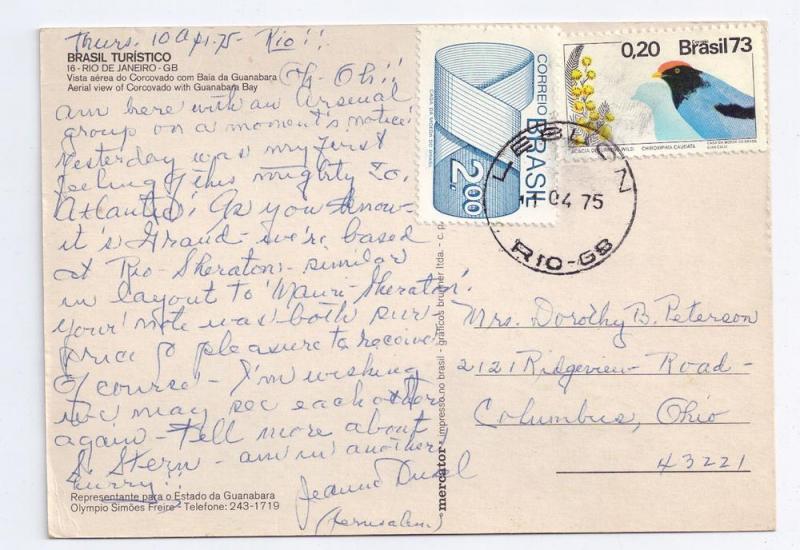 Thurs. 10 Ap. 75 - Rio!!
BRASIL TURÍSTICO
16 - RIO DE JANEIRO - GB
Vista aérea do Corcovado com Baia da Guanabara
Aerial view of Corcovado with Guanabara Bay
Oh - Oh!!
am here with an Arsenal
group on a moment's notice!
Yesterday was my first
feeling of this mighty So.
Atlantic! As you know -
it's Grand - we're based
at Rio-Sheraton - similar
in layout to 'Maui-Sheraton'.
Your note was both sur-
prise & pleasure to receive
Of course - I'm wishing
we may see each other
again - Tell more about
S. Stern - am in another
hurry!!
Jeanne
(Jerusalem)
Representante para o Estado da Guanabara
Olympio Simões Freire - Telefone: 243-1719
mercator impresso no brasil - gráficos brunner ltda. - c. p.
CASA DA MOEDA DO BRASIL
2,00
CORREIO BRASIL
0,20 Brasil 73
CHIROXIPHIA CAUDATA
CASA DA MOEDA DO BRASIL
LEBLON
04 75
RIO-GB
Mrs. Dorothy B. Peterson
2121 Ridgeview Road -
Columbus, Ohio
43221